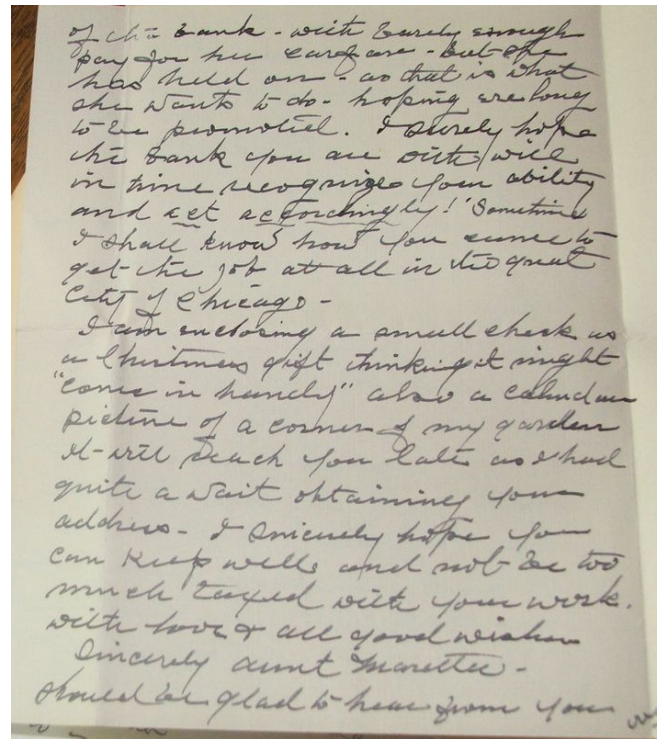 of the bank - with barely enough
pay for her carfare - but she
has held on - as that is what
she wants to do - hoping ere long
to be promoted. I surely hope
the bank you are with will
in time recognize your ability
and act accordingly! Sometime
I shall know how you came to
get the job at all in the great
City of Chicago -
I am enclosing a small check as
a Christmas gift thinking it might
"come in handy" also a calendar
picture of a corner of my garden
It will reach you late as I had
quite a wait obtaining your
address - I sincerely hope you
can keep well and not be too
much taxed with your work.
with love & all good wishes
Sincerely aunt Marette -
should be glad to hear from you